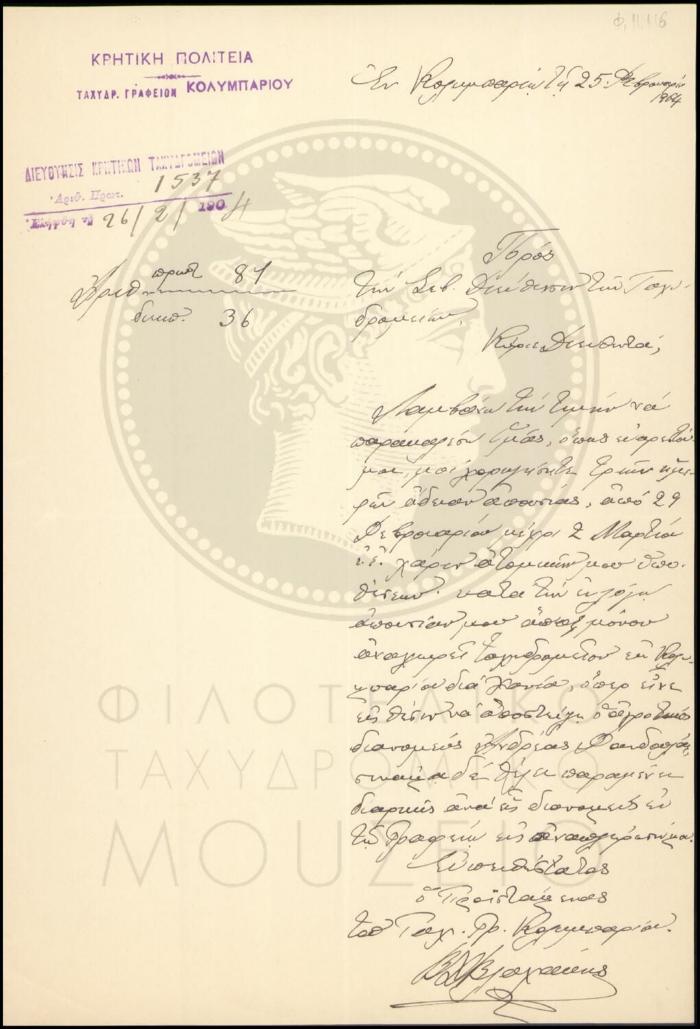 Φ.11.116
ΚΡΗΤΙΚΗ ΠΟΛΙΤΕΙΑ
ΤΑΧΥΔΡ. ΓΡΑΦΕΙΟΝ ΚΟΛΥΜΠΑΡΙΟΥ
Ἐν Κολυμπαρίῳ τῇ 25 Φεβρουαρίου
1904
ΔΙΕΥΘΥΝΣΙΣ ΚΡΗΤΙΚΩΝ ΤΑΧΥΔΡΟΜΕΙΩΝ
Ἀριθ. Πρωτ. 1537
Ἐλήφθη τῇ 26/2/1904
Ἀριθ πρωτ 81
διεκπ. 36
Πρὸς
τὴν Σεβ. Διεύθυνσιν τῶν Ταχυ-
δρομείων.
Κύριε Διευθυντά,
Λαμβάνω τὴν τιμὴν νὰ
παρακαλέσω Ὑμᾶς, ὅπως εὐαρεστού-
μενοι, μοὶ χορηγήσητε τριῶν ἡμε-
ρῶν ἄδειαν ἀπουσίας, ἀπὸ 29
Φεβρουαρίου μέχρι 2 Μαρτίου
ἐ.ἔ. χάριν ἀτομικῶν μου ὑπο-
θέσεων. κατὰ τὴν ἐν λόγῳ
ἀπουσίαν μου ἅπαξ μόνον
ἀναχωρεῖ ταχυδρομεῖον ἐκ Κολυ-
μπαρίου διὰ Χανία, ὅπερ εἶνε
εἰς θέσιν νὰ ἀποστείλῃ ὁ ἀγροτικὸς
διανομεὺς Ἀνδρέας
δὲ θέλει παραμένει
διαρκῶς ἀνὰ εἷς διανομεὺς ἐν
τῷ Γραφείῳ εἰς
Εὐπειθέστατος
ὁ Προϊστάμενος
τοῦ Ταχ. Γρ. Κολυμπαρίου.
ΦΙΛΟΤΕΛΙΚΟ
ΤΑΧΥΔΡΟΜΙΚΟ
ΜΟΥΣΕΙΟ